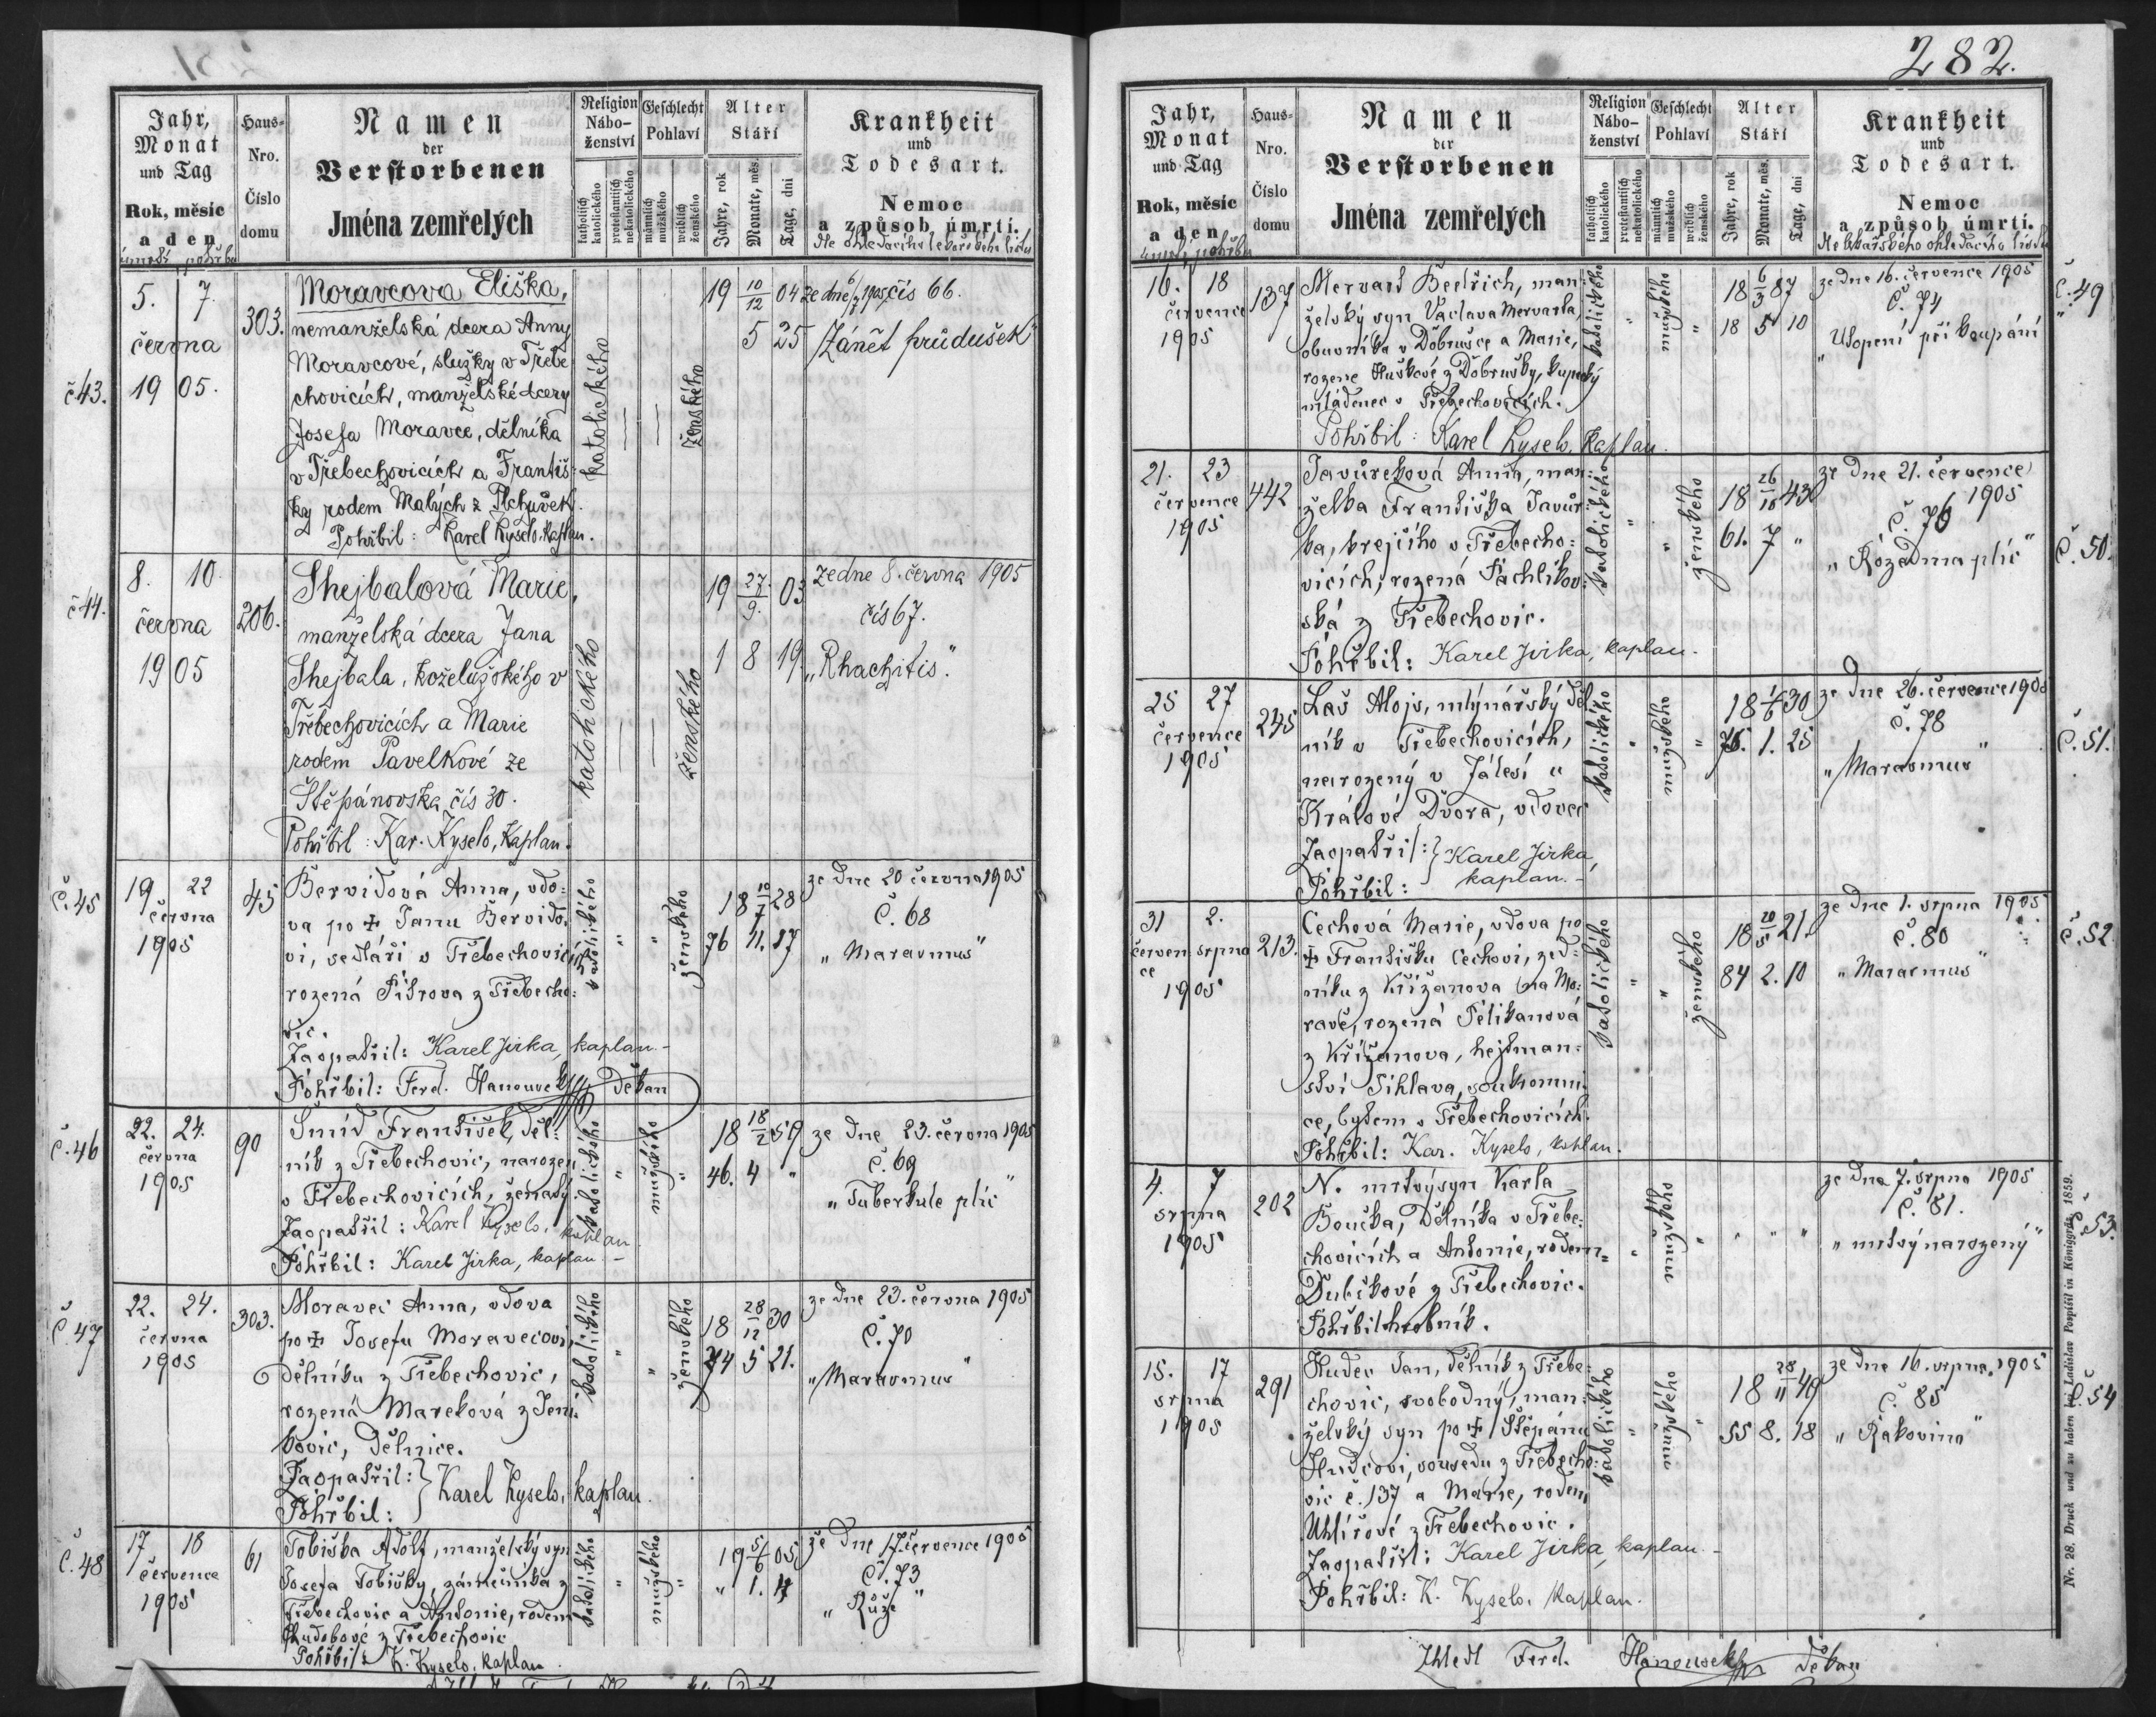 282.
Jahr,
Monat
und Tag
Rok, měsíc
a den
úmrtí pohřbu
Haus-
Nro.
Číslo
domu
Namen
der
Verstorbenen
Jména zemřelých
Religion
Nábo-
ženství
katholisch
katolického
protestantisch
nekatolického
Geschlecht
Pohlaví
männlich
mužského
weiblich
ženského
Alter
Stáří
Jahre, rok
Monate, měs.
Tage, dni
Krankheit
und
Todesart.
Nemoc
a způsob úmrtí.
dle ohledacího lékařského listu
č43.
5. 7.
června
1905.
303.
Moravcova Eliška,
nemanželská dcera Anny
Moravcové, služky v Třebe
chovicích, manželské dcery
Josefa Moravce, dělníka
v Třebechovicích a Františ-
ky rodem Malých z Plchůvek.
Pohřbil: Karel Kyselo, kaplan.
katolického
ženského
19 10/12 04
5 25
ze dne 6/6 1905 čís 66.
"Zánět průdušek"
č44.
8. 10.
června
1905
206.
Shejbalová Marie,
manželská dcera Jana
Shejbala, koželužského v
Třebechovicích a Marie
rodem Pavelkové ze
Štěpánovska čís 30.
Pohřbil: Kar. Kyselo, Kaplan.
katolického
ženského
19 27/9. 03
1 8 19.
ze dne 8. června 1905
čís 67.
"Rhachitis".
č.45
19 22
června
1905
45
Bervidová Anna, vdo:
va po ✝ Janu Bervido:
vi, sedláři v Třebechovicích
rozená Píšrova z Třebecho:
vic.
Zaopatřil: Karel Jirka, kaplan.-
Pohřbil: Ferd. Hanousek děkan
katolického " "
ženského
18 10/7 28
76 11. 17
ze dne 20 června 1905
č. 68
"Marasmus"
č.46
22. 24.
června
1905
90
Šmíd František, děl-
ník z Třebechovic, narozen
v Třebechovicích, ženatý
Zaopatřil: Karel Kyselo, kaplan.
Pohřbil: Karel Jirka, kaplan.-
katolického "
mužského "
18 18/2 59
46. 4 "
ze dne 23. června 1905
č. 69
"Tuberkule plic"
č.47
22. 24.
června
1905
303.
Moravec Anna, vdova
po ✝ Josefu Moravcovi,
dělníku z Třebechovic,
rozená Mareková z Jeni:
kovic, dělnice.
Zaopatřil: } Karel Kyselo, kaplan.
Pohřbil:
katolického " "
ženského
18 28/12 30
74 5 21.
ze dne 23. června 1905
č. 70
"Marasmus"
č.48
17 18
července
1905
61
Tobiška Adolf, manželský syn
Josefa Tobišky, zámečníka z
Třebechovic a Antonie, rodem
Ludvkové z Třebechovic
Pohřbil: K. Kyselo, kaplan
katolického "
mužského "
19 5/6 05
" 1. 12
ze dne 17. července 1905
č. 73
"Růže"
Jahr,
Monat
und Tag
Rok, měsíc
a den
úmrtí, pohřbu
Haus-
Nro.
Číslo
domu
Namen
der
Verstorbenen
Jména zemřelých
Religion
Nábo-
ženství
katholisch
katolického
protestantisch
nekatolického
Geschlecht
Pohlaví
männlich
mužského
weiblich
ženského
Alter
Stáří
Jahre, rok
Monate, měs.
Tage, dni
Krankheit
und
Todesart.
Nemoc
a způsob úmrtí.
dle lékařského ohledacího listu
16. 18
července
1905
137
Mervart Bedřich, man:
želský syn Václava Mervarta,
obuvníka v Dobrušce a Marie,
rozené Huškové z Dobrušky, kupecký
mládenec v Třebechovicích.
Pohřbil: Karel Kyselo, kaplan.
katolického "
mužského "
18 6/3 87
18 5 10
ze dne 16. července 1905
č. 74
"Utopení při koupání
č.49
21. 23
července
1905
442
Javůreková Anna, man:
želka Františka Javůr
ka, krejčího v Třebecho:
vicích, rozená Pachlikov:
ská z Třebechovic.
Pohřbil: Karel Jirka, kaplan.-
katolického " "
ženského
18 26/10 43
61. 7 "
ze dne 21. července
1905
č. 76
"Rozedma plic"
č.50.
25 27
července
1905
245
Laš Alojs, mlýnářský děl
ník v Třebechovicích,
narozený v Zálesí u
Králové Dvora, vdovec
Zaopatřil: } Karel Jirka,
Pohřbil: kaplan.-
katolického "
mužského "
18 1/6 30
75. 1. 25
ze dne 26. července 1905
č. 78
"Marasmus"
č.51.
31 2.
červen srpna
ce
1905
213.
Čechová Marie, vdova po
✝ Františku Čechovi, zed:
níku z Křižanova na Mo:
ravě, rozená Pelikanová
z Křižanova, hejtman:
ství Jihlava, soukromni:
ce, bytem v Třebechovicích.
Pohřbil: Kar. Kyselo, kaplan.
katolického " "
ženského
18 20/5 21.
84 2. 10
ze dne 1. srpna 1905
č. 80
"Marasmus"
č.52.
4. 7
srpna
1905
202
N. mrtvý syn Karla
Boučka, dělníka v Třebe:
chovicích a Antonie, rodem
Dubičkové z Třebechovic.
Pohřbil hrobník.
" "
mužského
" " " "
ze dne 7. srpna 1905
č. 81.
"mrtvý narozený"
č.53.
15. 17
srpna
1905
291
Hudec Jan, dělník z Třebe:
chovic, svobodný, man:
želský syn po ✝ Štěpánu
Hudcovi, sousedu z Třebecho:
vic č. 137 a Marie, rodem
Uhlířové z Třebechovic.
Zaopatřil: Karel Jirka, kaplan.-
Pohřbil: K. Kyselo, Kaplan.
katolického "
mužského "
18 28/11 49
55 8. 18
ze dne 16. srpna 1905
č. 85
"Rakovina"
č.54
Zhledl Ferd. Hanousek děkan
Nr. 28. Druck und zu haben bei Ladislav Pospíšil in Königgrätz 1859.